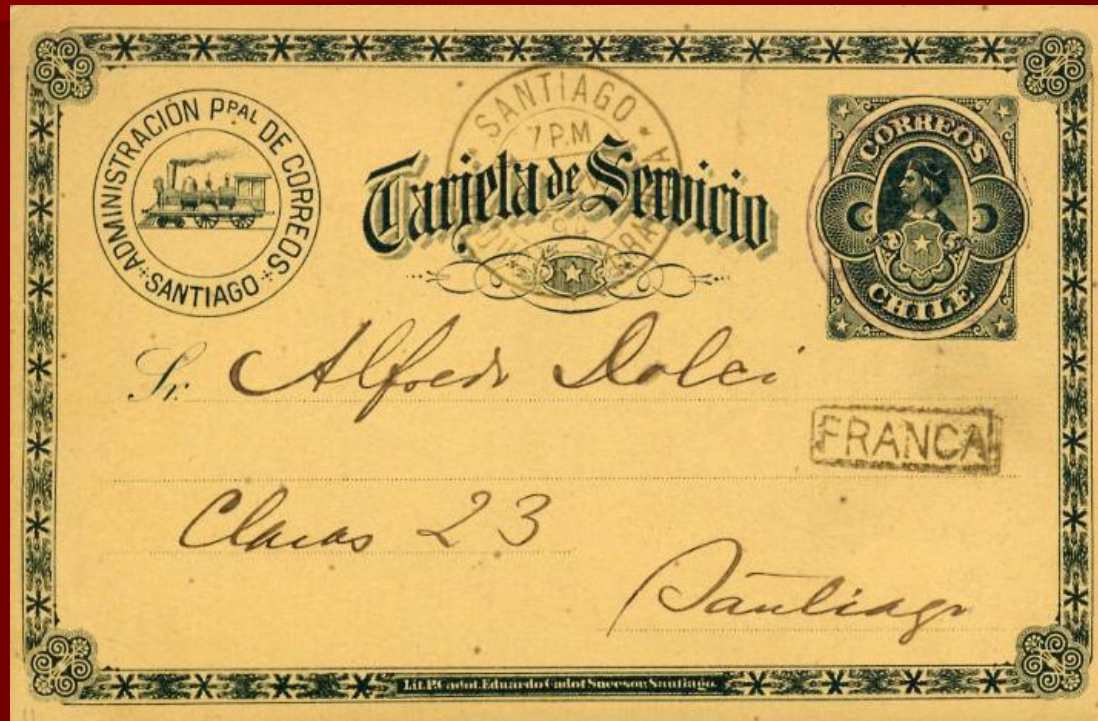 ADMINISTRACIÓN PPAL DE CORREOS
SANTIAGO
SANTIAGO
7 P.M
Tarjeta de Servicio
CORREOS
CHILE
Sr. Alfredo Dolci
FRANCA
Claras 23
Santiago
Lit. P. Cadot. Eduardo Cadot Sucesor. Santiago.